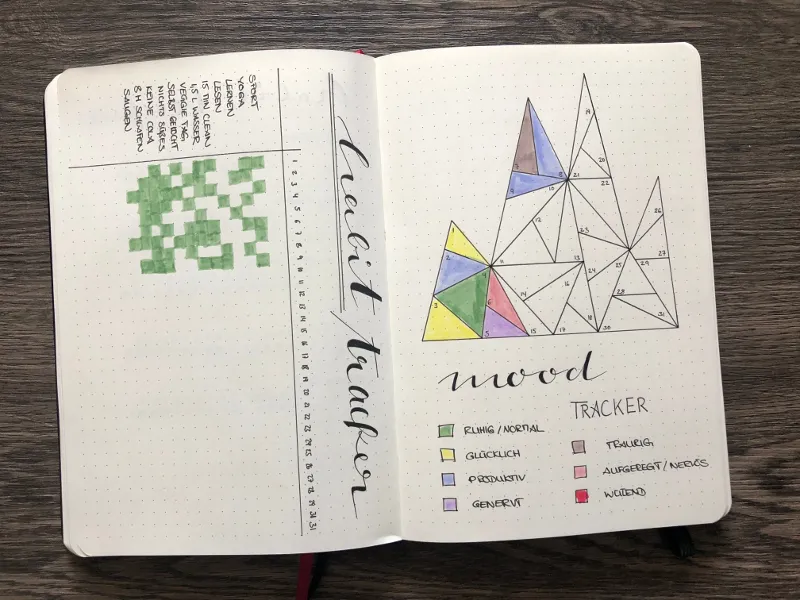 habit tracker
SPORT
YOGA
LERNEN
LESEN
15 MIN CLEAN
1,5 L WASSER
VEGGIE TAG
SELBST GEKOCHT
NICHTS SÜßES
KEINE COLA
8 H SCHLAFEN
SAUGEN
1 2 3 4 5 6 7 8 9 10 11 12 13 14 15 16 17 18 19 20 21 22 23 24 25 26 27 28 29 30 31
19
20
21
22
10
12
26
23
1
2
11
13
24
25
29
27
3
6
14
16
28
5
15
17
18
30
31
mood
TRACKER
RUHIG / NORMAL
GLÜCKLICH
PRODUKTIV
GENERVT
TRAURIG
AUFGEREGT / NERVÖS
WÜTEND